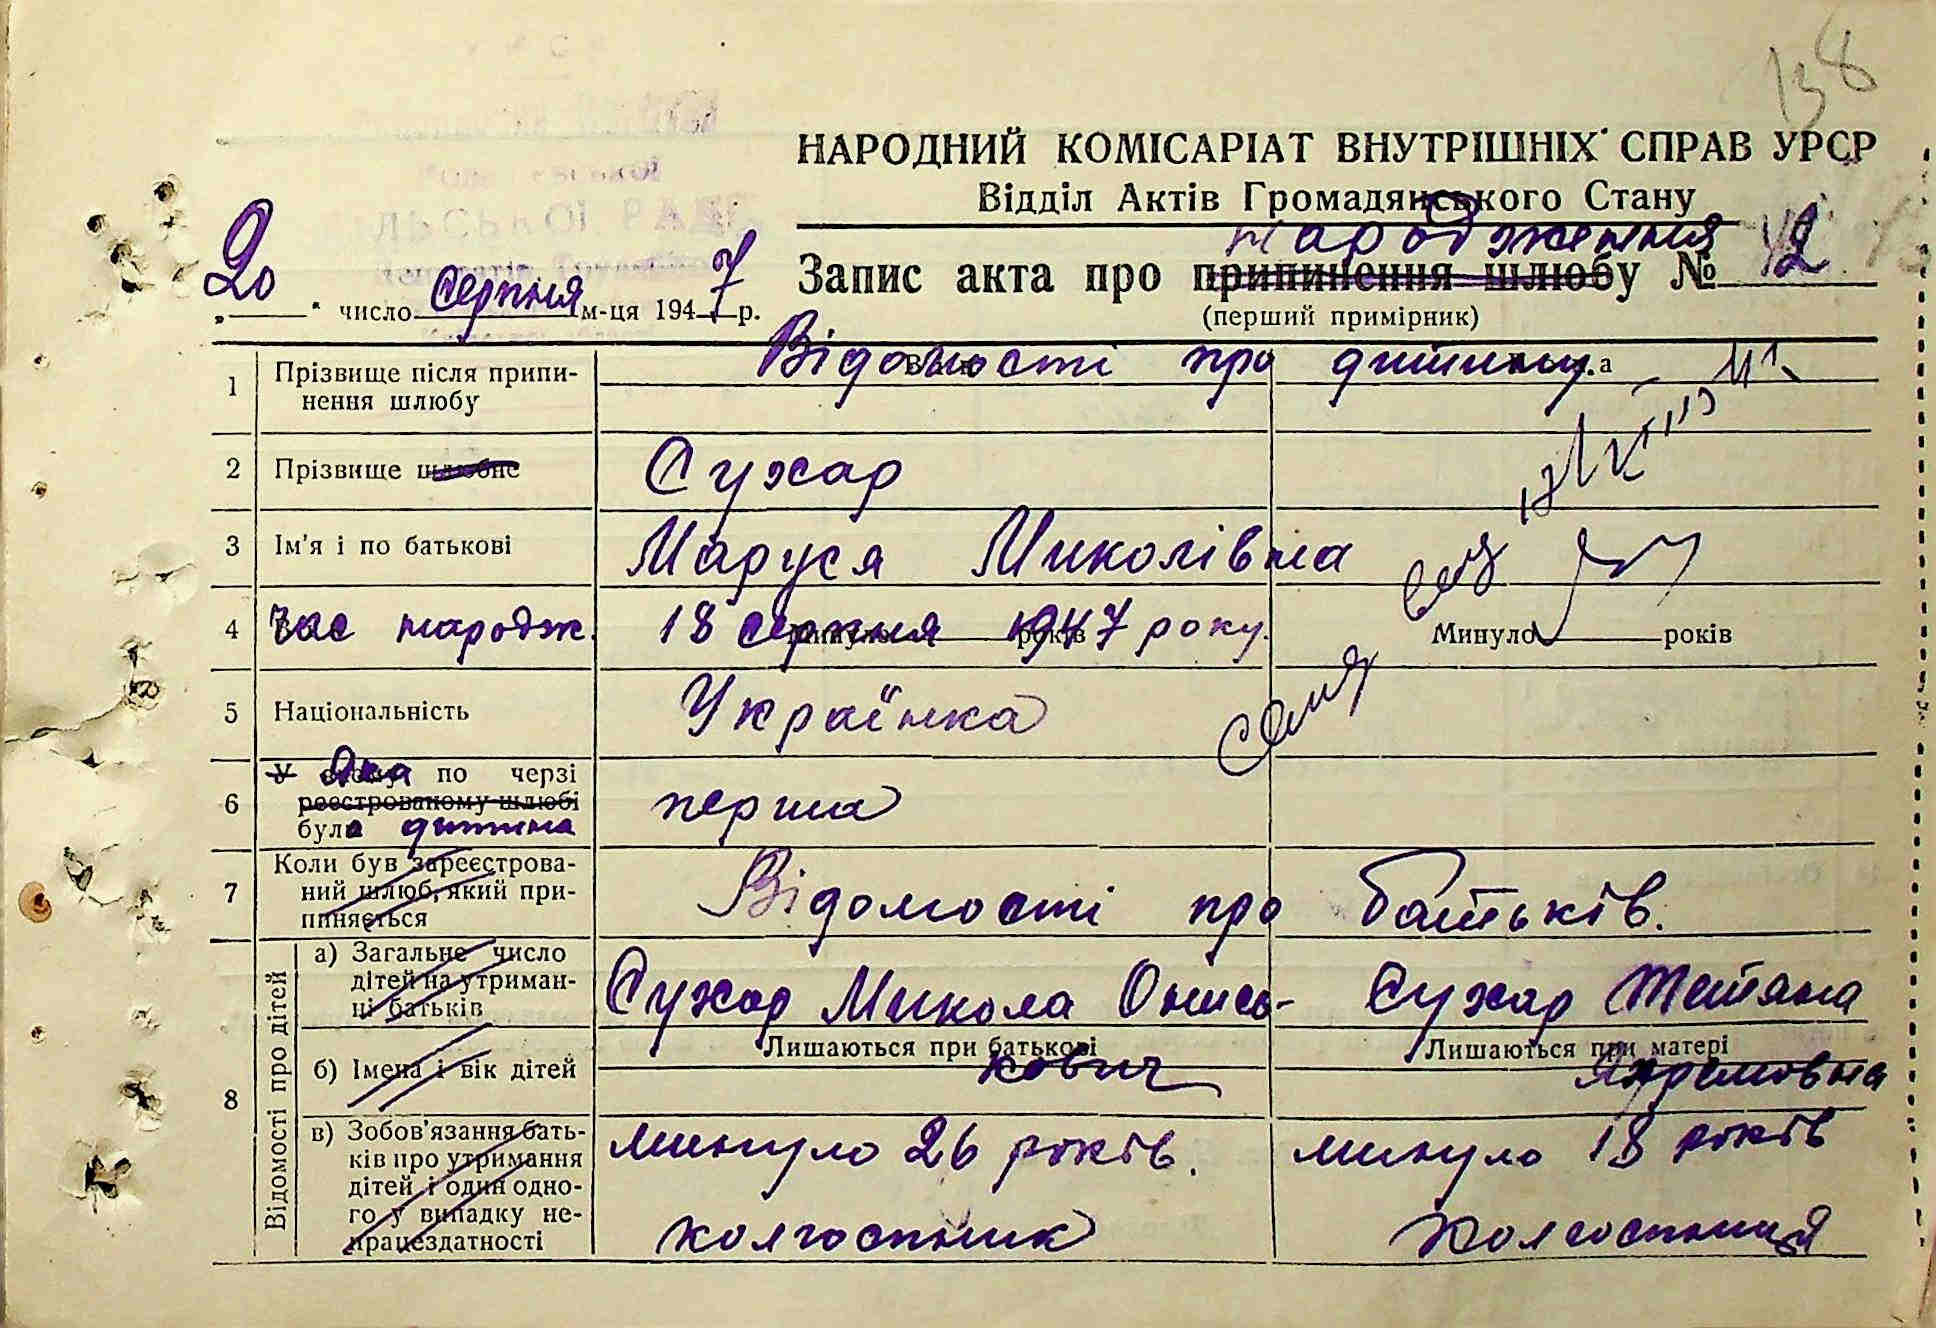 138
НАРОДНИЙ КОМІСАРІАТ ВНУТРІШНІХ СПРАВ УРСР
Відділ Актів Громадянського Стану
ІЛЬСЬКОЇ РАДИ
народження
Запис акта про припинення шлюбу № 42
(перший примірник)
„20“ число серпня м-ця 1947 р.
Відомості про дитину
1 Прізвище після припинення шлюбу
2 Прізвище шлюбне Сухар
3 Ім'я і по батькові Маруся Миколівна
4 Час народж. 18 серпня 1947 року. Минуло років
5 Національність Українка
6 У Яка по черзі реєстрованому шлюбі була дитина перша
7 Коли був зареєстрований шлюб, який припиняється
Відомості про батьків.
8 Відомості про дітей
а) Загальне число дітей на утриманні батьків
Сухар Микола Ониськович
Сухар Тетяна Яхремовна
б) Імена і вік дітей
Лишаються при батькові
Лишаються при матері
в) Зобов'язання батьків про утримання дітей і один одного у випадку непрацездатності
минуло 26 років.
минуло 18 років
колгоспник
колгоспниця